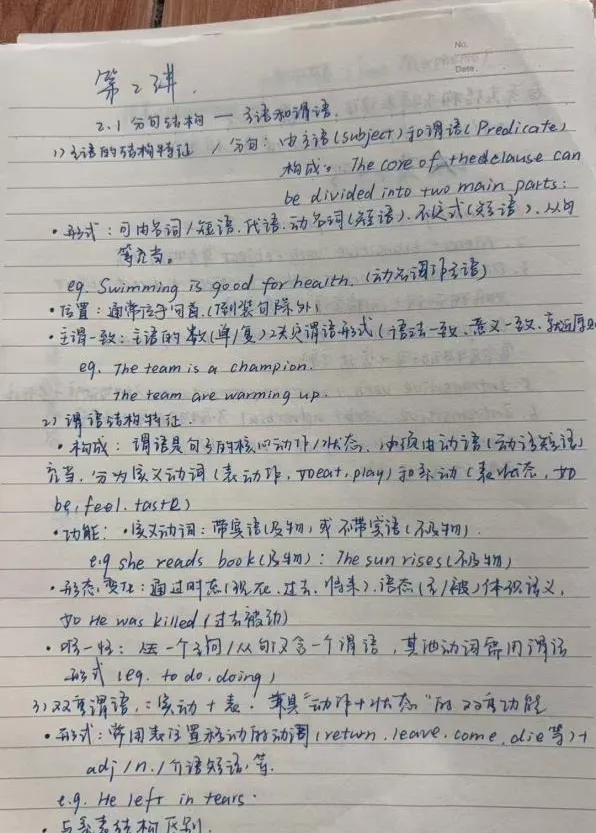 No.
Date.
第2讲.
2.1 分句结构 — 主语和谓语.
1) 主语的结构特征 / 分句: 由主语(subject)和谓语(Predicate)
构成。The core of the clause can
be divided into two main parts:
• 形式: 可由名词/短语、代语、动名词(短语)、不定式(短语)、从句
等充当。
eg. Swimming is good for health. (动名词作主语)
• 位置: 通常位于句首,(倒装句除外)
• 主谓一致: 主语的数(单/复)决定谓语形式(语法一致、意义一致、就近原则
eg. The team is a champion.
The team are warming up.
2) 谓语结构特征.
• 构成: 谓语是句子的核心动作/状态、必须由动语(动语短语)
充当, 分为实义动词(表动作, 如eat, play)和系动(表状态, 如
be, feel. taste)
• 功能: • 实义动词: 带宾语(及物)或不带宾语(不及物).
e.g she reads book(及物): The sun rises(不及物)
• 形态变化: 通过时态(现在、过去、将来)、语态(主/被)体现语义,
如 He was killed (过去被动)
• 唯一性: 在一个主句/从句仅含一个谓语, 其他动词需用谓语
形式 (eg. to do, doing)
3) 双重谓语.: 实动 + 表. 兼具"动作+状态"的双重功能
• 形式: 常用表位置移动的动词(return, leave, come, die等)+
adj/n./介语短语, 等.
e.g. He left in tears.
• 与系表结构区别.